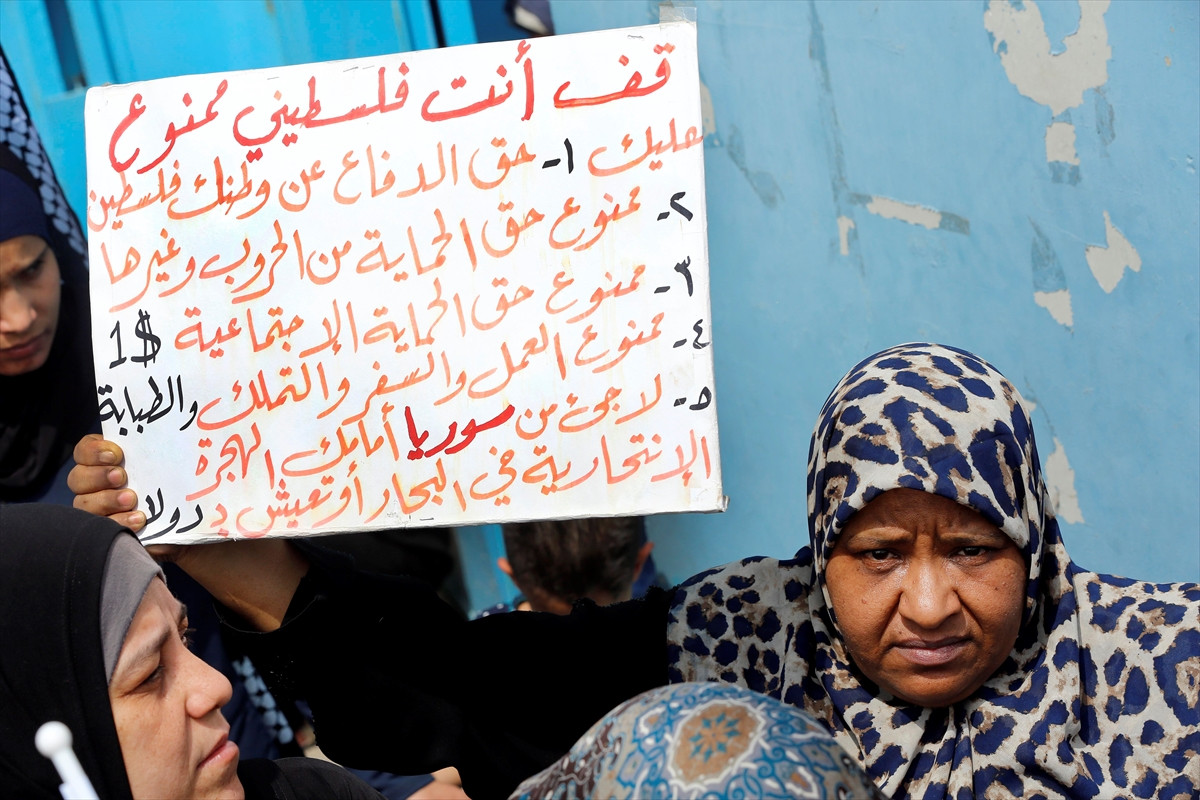 قف أنت فلسطيني ممنوع
عليك ١- حق الدفاع عن وطنك فلسطين
٢- ممنوع حق الحماية من الحروب وغيرها
٣- ممنوع حق الحماية الإجتماعية
٤- ممنوع العمل والسفر والتملك والطبابة
٥- لاجئ من سوريا أمامك الهجرة
الإنتحارية في البحار أو تعيش بـ دولار
1$